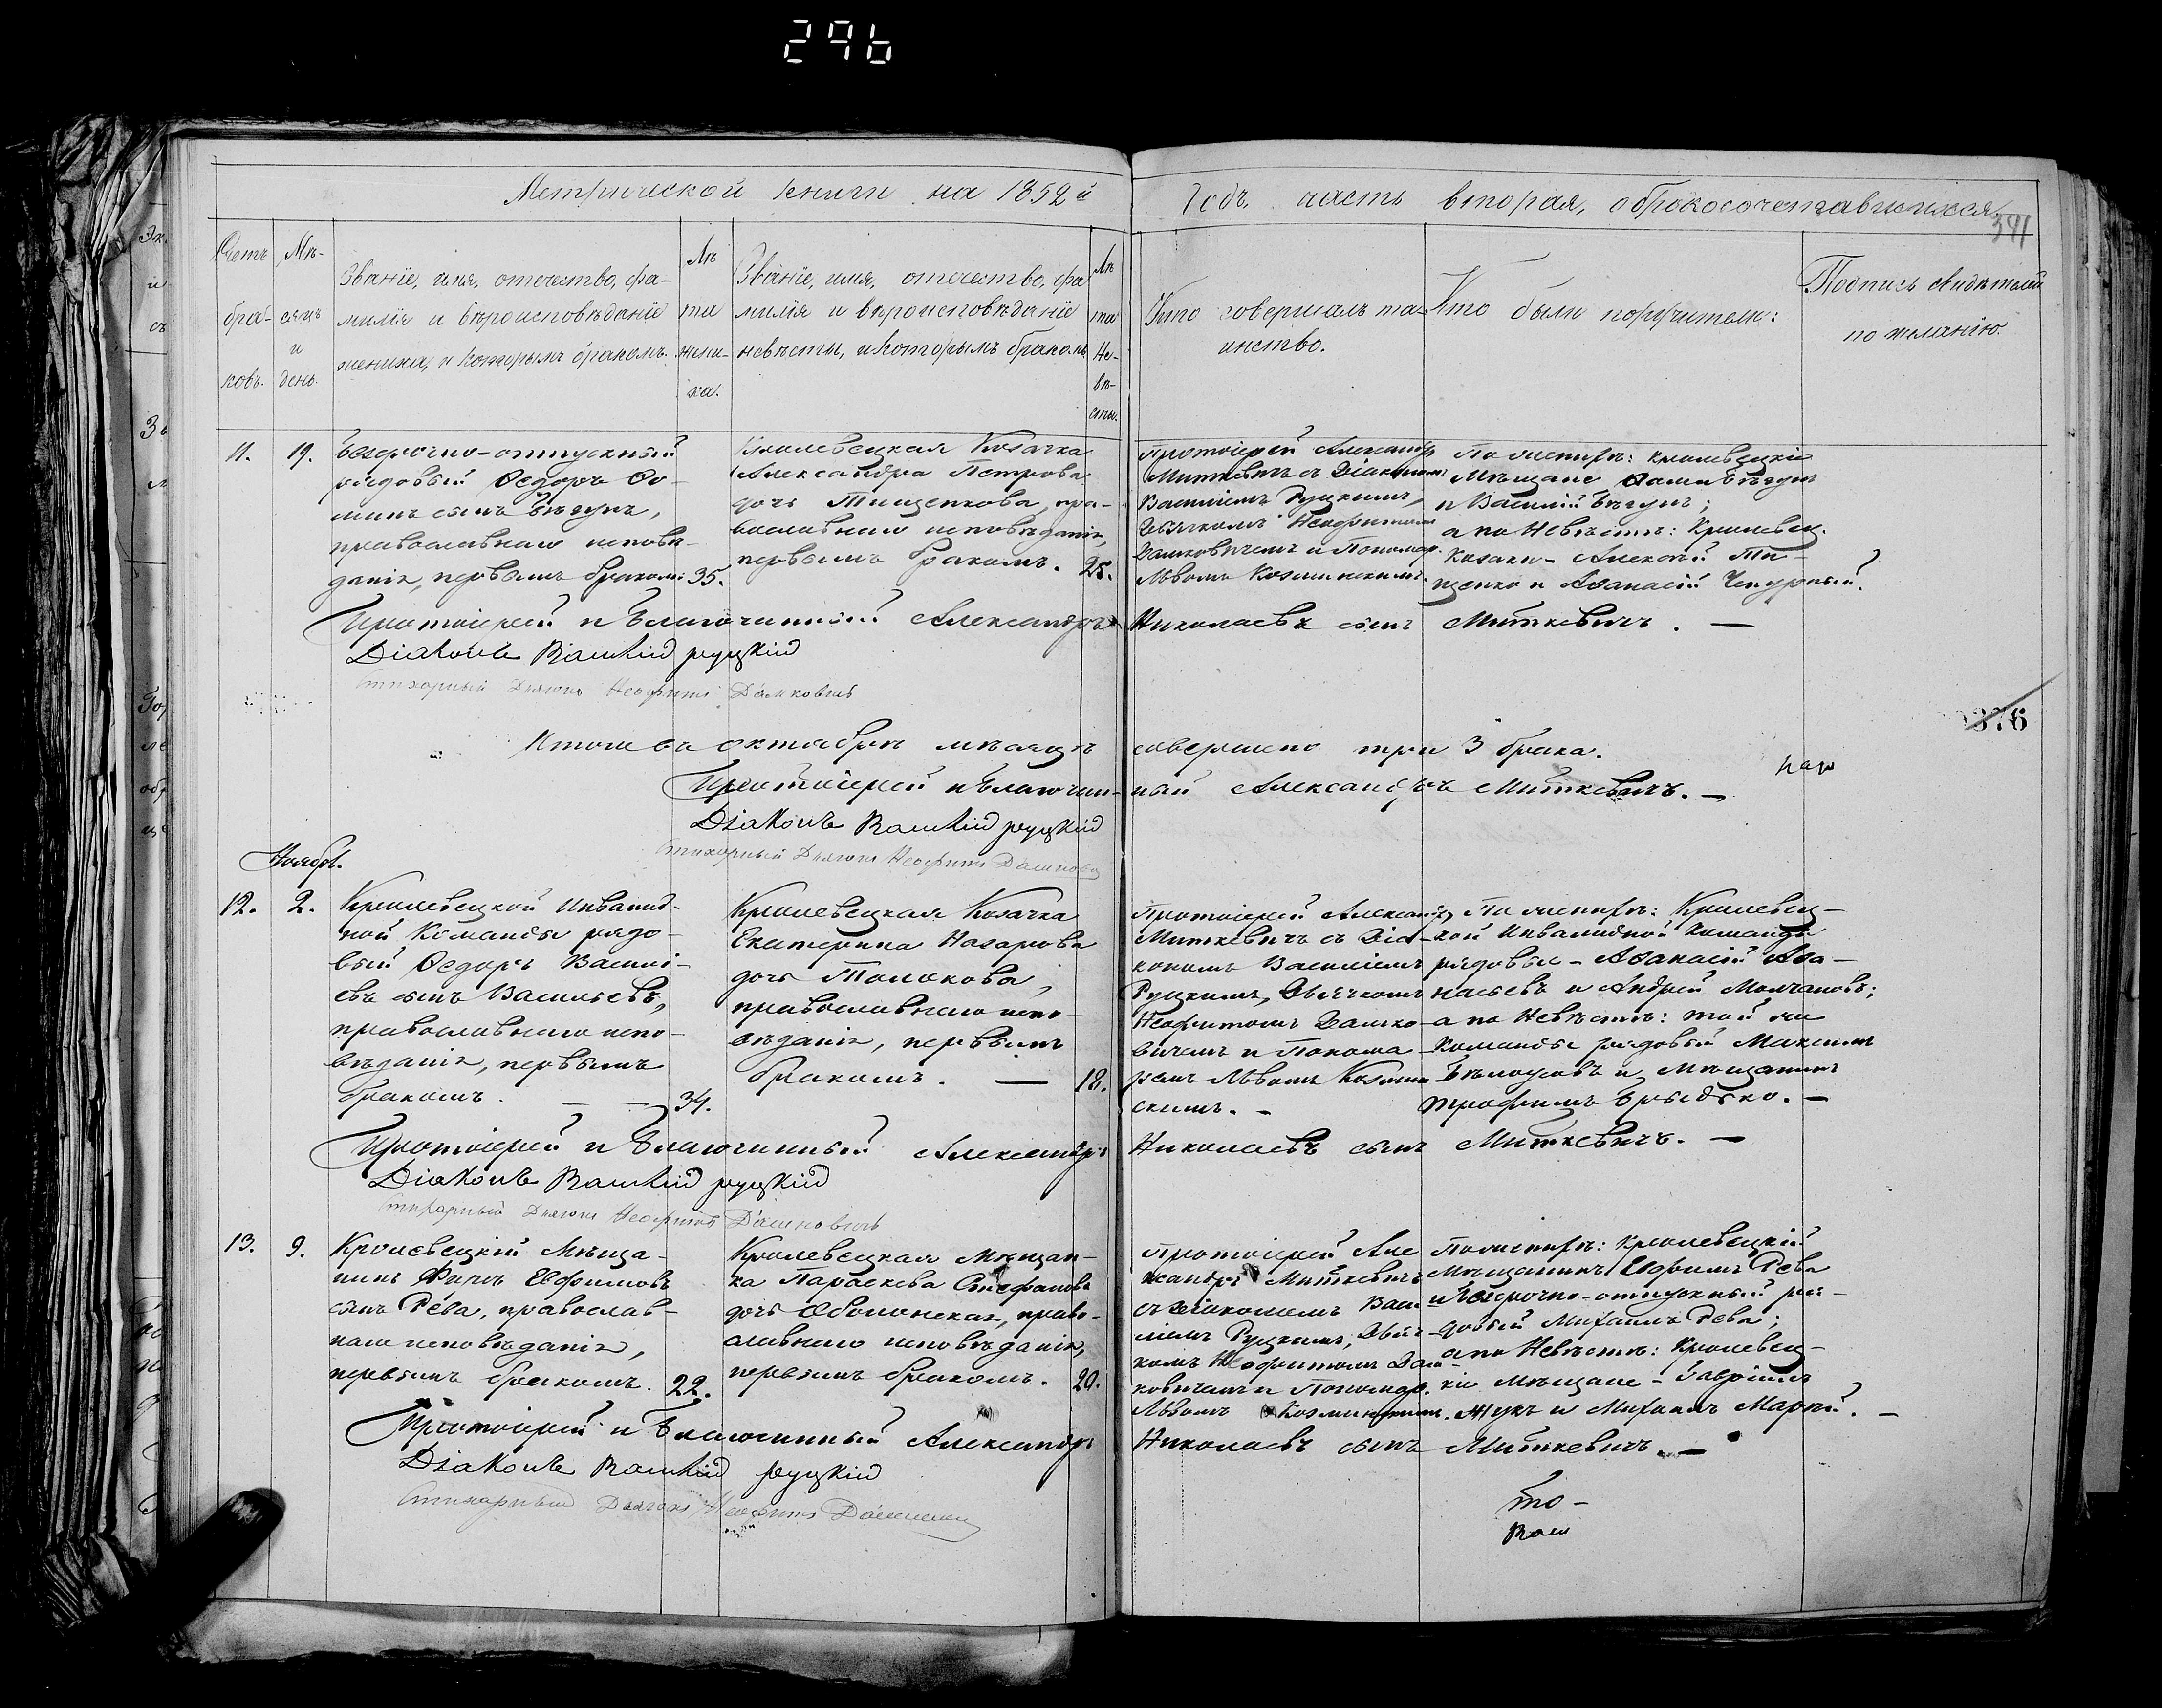 296
Метрической книги на 1852й
Годъ. часть вторая, о бракосочетавшихся.
341
Счетъ браковъ.
Мѣсяцъ и день.
Званіе, имя, отечество, фа-
милія и вѣроисповѣданіе
жениха, и которымъ бракомъ.
Лѣта жениха.
Званіе, имя, отечество, фа
милія и вѣроисповѣданіе
невѣсты, и которымъ бракомъ
Лѣта Невѣсты.
Кто совершалъ та-
инство.
Кто были поручители:
Подпись свидѣтелей
по желанію.
11. 19.
Безсрочно-отпускный
рядовый Ѳедоръ Ѳо-
минъ сынъ Бѣгунъ,
православнаго исповѣ-
данія, первымъ бракомъ 35.
Кролевецкая Козачка
Александра Петрова
дочь Тищенкова, пра-
вославнаго исповѣданія,
первымъ бракомъ. 25.
Протоіерей Александръ
Миткевичъ съ Діакономъ
Василіемъ Руцкимъ,
Дьячкомъ Неофитомъ
Дашковичемъ и Пономар.
Львомъ Козминскимъ.
По женихѣ: Кролевецкіе
Мѣщане Ѳома Бѣгунъ
и Василій Бѣгунъ;
а по Невѣстѣ: Кролевец.
Козаки - Алексѣй Ти-
щенко и Аѳанасій Чепурный.
Протоіерей и Благочинный Александръ Николаевъ сынъ Миткевичъ. —
Діаконъ Василій Руцкій
Стихарный Дьячокъ Неофитъ Дашковичъ
376
Итого въ октябрѣ мѣсяцѣ совершено три 3 брака.
Протоіерей и Благочин-ный Александръ Миткевичъ. —
Діаконъ Василій Руцкій
Стихарный Дьячокъ Неофитъ Дашкович
Ноябрь.
12. 2.
Кролевецкой Инвалид-
ной Команды рядо-
вый Ѳедоръ Василі-
евъ сынъ Васильевъ,
православнаго испо-
вѣданія, первымъ
бракомъ. — — 34.
Кролевецкая Козачка
Екатерина Назарова
дочь Толокова,
православнаго испо-
вѣданія, первымъ
бракомъ. — 18.
Протоіерей Александръ
Миткевичъ съ Діа-
кономъ Василіемъ
Руцкимъ, Дьячкомъ
Неофитомъ Дашко-
вичемъ и Понома-
ремъ Львомъ Козмин
скимъ. -
По женихѣ: Кролевец-
кой Инвалидной Команды
рядовые - Аѳанасій Аѳа-
насьевъ и Андрей Молчановъ;
а по Невѣстѣ: той же
Команды рядовый Максимъ
Бѣлоусовъ и Мѣщанинъ
Трофимъ Брыдько. —
Протоіерей и Благочинный Александръ Николаевъ сынъ Миткевичъ. —
Діаконъ Василій Руцкій
Стихарный Дьячокъ Неофитъ Дашковичъ
13. 9.
Кролевецкій Мѣща-
нинъ Фирсъ Евфимовъ
сынъ Рева, православ-
наго исповѣданія,
первымъ бракомъ. 22.
Кролевецкая Мѣщан-
ка Параскева Стефанова
дочь Оболонская, право-
славнаго исповѣданія,
первымъ бракомъ. 20.
Протоіерей Але
ксандръ Миткевичъ
съ Діакономъ Васи-
ліемъ Руцкимъ, Дьяч-
комъ Неофитомъ Даш-
ковичемъ и Пономар.
Львомъ Козминскимъ.
По женихѣ: Кролевецкій
Мѣщанинъ Ефимъ Рева
и Безсрочно-отпускный ря-
довый Михаилъ Рева;
а по Невѣстѣ: Кролевец-
кіе Мѣщане - Гавріилъ
Жукъ и Михаилъ Марой. —
Протоіерей и Благочинный Александръ Николаевъ сынъ Миткевичъ. —
Діаконъ Василій Руцкій
Стихарный Дьячокъ Неофитъ Дашкович